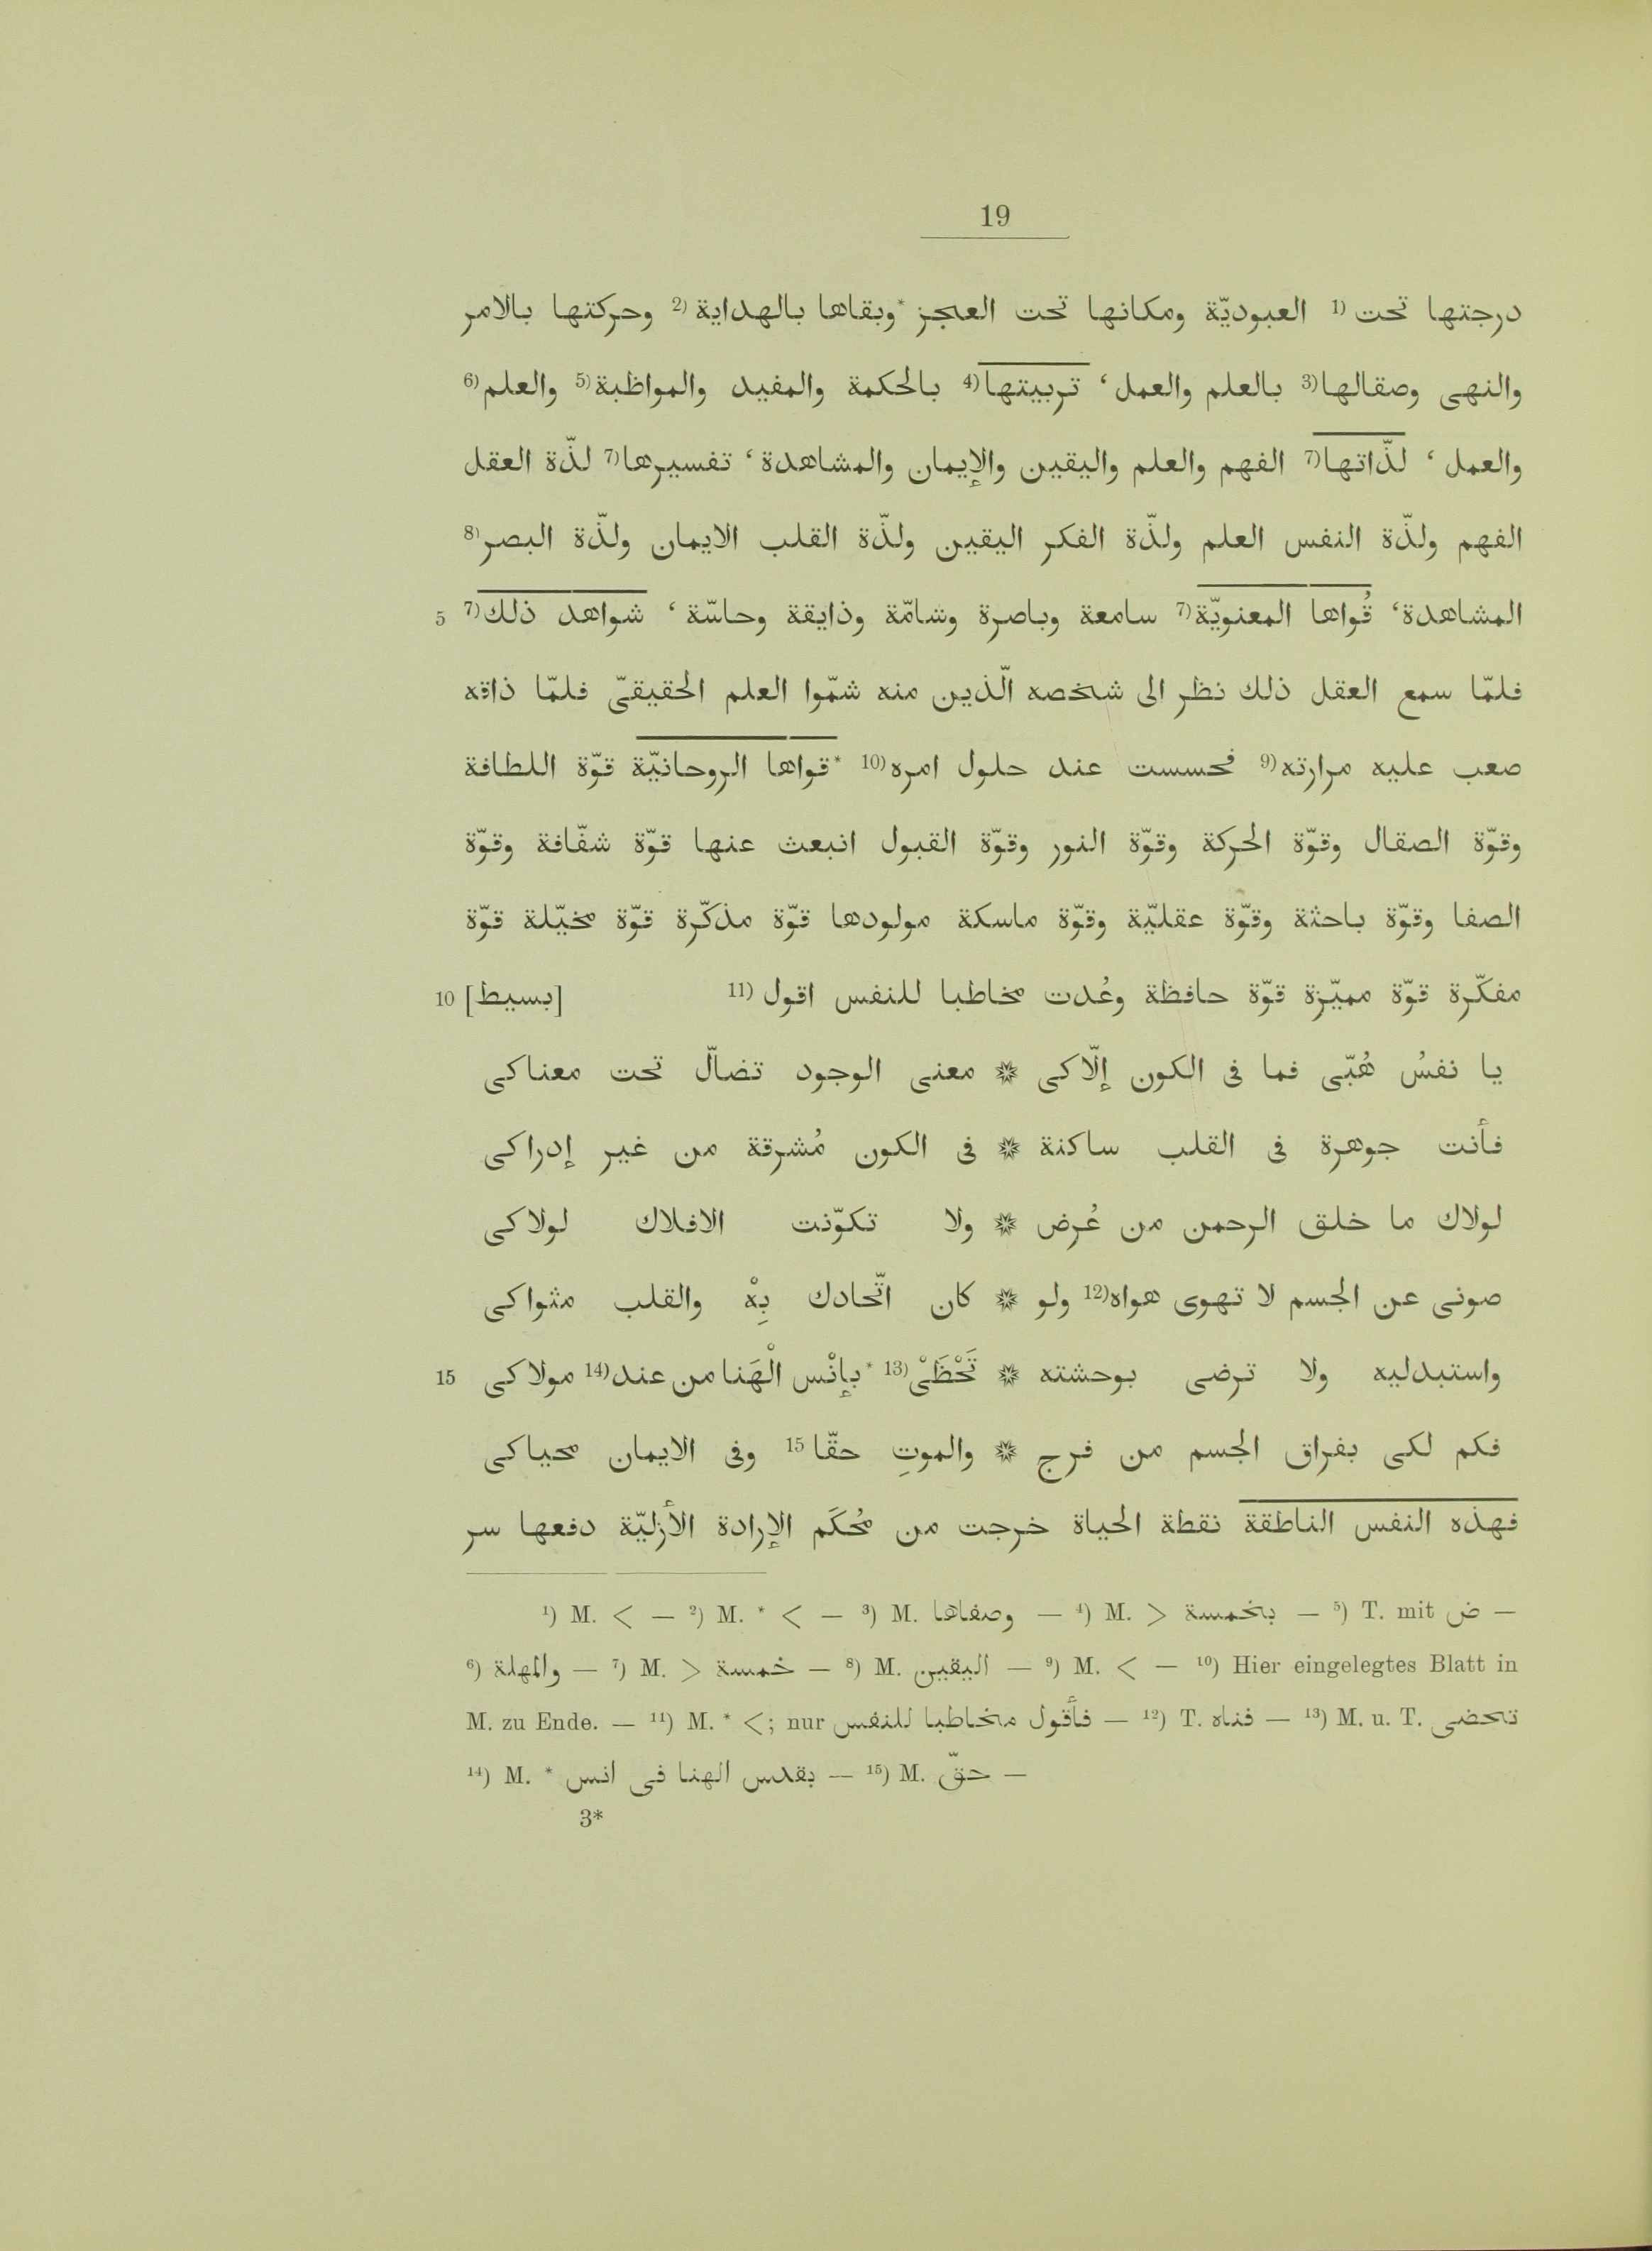 19
درجتها تحت (1 العبوديّة ومكانها تحت العجز *وبقاها بالهداية (2 وحركتها بالامر
والنهى وصقالها(3 بالعلم والعمل، تربيتها(4 بالحكمة والمفيد والمواظبة(5 والعلم(6
والعمل، لذّاتها(7 الفهم والعلم واليقين والإيمان والمشاهدة، تفسيرها(7 لذّة العقل
الفهم ولذّة النفس العلم ولذّة الفكر اليقين ولذّة القلب الايمان ولذّة البصر(8
المشاهدة، قُواها المعنويّة(7 سامعة وباصرة وشامّة وذايقة وحاسّة، شواهد ذلك(7 5
فلمّا سمع العقل ذلك نظر الى شخصه الّذين منه شمّوا العلم الحقيقىّ فلمّا ذاقه
صعب عليه مرارته(9 فحسست عند حلول امره(10 *قواها الروحانيّة قوّة اللطافة
وقوّة الصقال وقوّة الحركة وقوّة النور وقوّة القبول انبعث عنها قوّة شفّافة وقوّة
الصفا وقوّة باحثة وقوّة عقليّة وقوّة ماسكة مولودها قوّة مذكّرة قوّة مخيّلة قوّة
مفكّرة قوّة مميّزة قوّة حافظة وعُدت مخاطبا للنفس اقول (11 [بسيط] 10
يا نفسُ هُبّى فما فى الكون إلّاكى * معنى الوجود تضالّ تحت معناكى
فأنت جوهرة فى القلب ساكنة * فى الكون مُشرقة من غير إدراكى
لولاك ما خلق الرحمن من عُرض * ولا تكوّنت الافلاك لولاكى
صونى عن الجسم لا تهوى هواه(12 ولو * كان اتّحادك بِهْ والقلب مثواكى
واستبدليه ولا ترضى بوحشته * تَحْظَىْ(13 *بإنْس الْهَنا من عند(14 مولاكى 15
فكم لكى بفراق الجسم من فرج * والموتِ حقّا 15 وفى الايمان محياكى
فهذه النفس الناطقة نقطة الحياة خرجت من مُحكَم الإرادة الأزليّة دفعها سر
1) M. < — 2) M. * < — 3) M. وصفاها — 4) M. > بخمسة — 5) T. mit ض —
6) والمهلة — 7) M. > خمسة — 8) M. اليقين — 9) M. < — 10) Hier eingelegtes Blatt in
M. zu Ende. — 11) M. * <; nur فأقول مخاطبا للنفس — 12) T. فناه — 13) M. u. T. تحضى
14) M. * بقدس الهنا فى انس — 15) M. حقّ —
3*